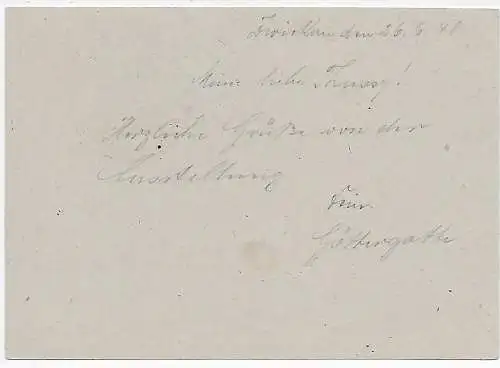 Zwickau den 26. 6. 48
Meine liebe
Herzliche Grüße von der
Ausstellung
Dein
Göttergatte